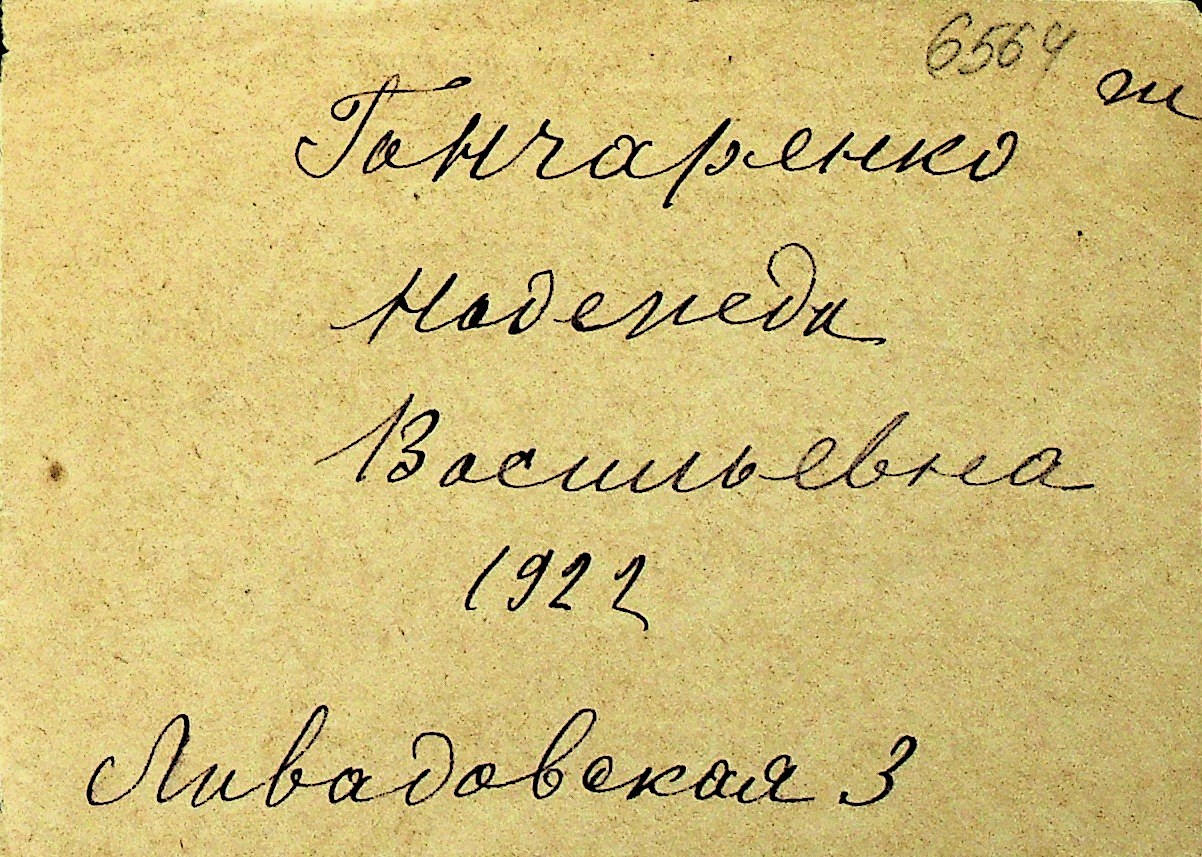 6564 т
Гончаренко
Надежда
Васильевна
1922
Ливадовская 3